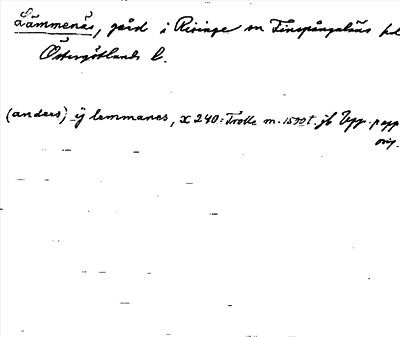 Lämmenäs, gård i Risinge sn Finspångaläns hd
Östergötlands l.
(anders) ij lemmanes, x 240: Trolle m. 1500 t. jb Upp. papp
orig.